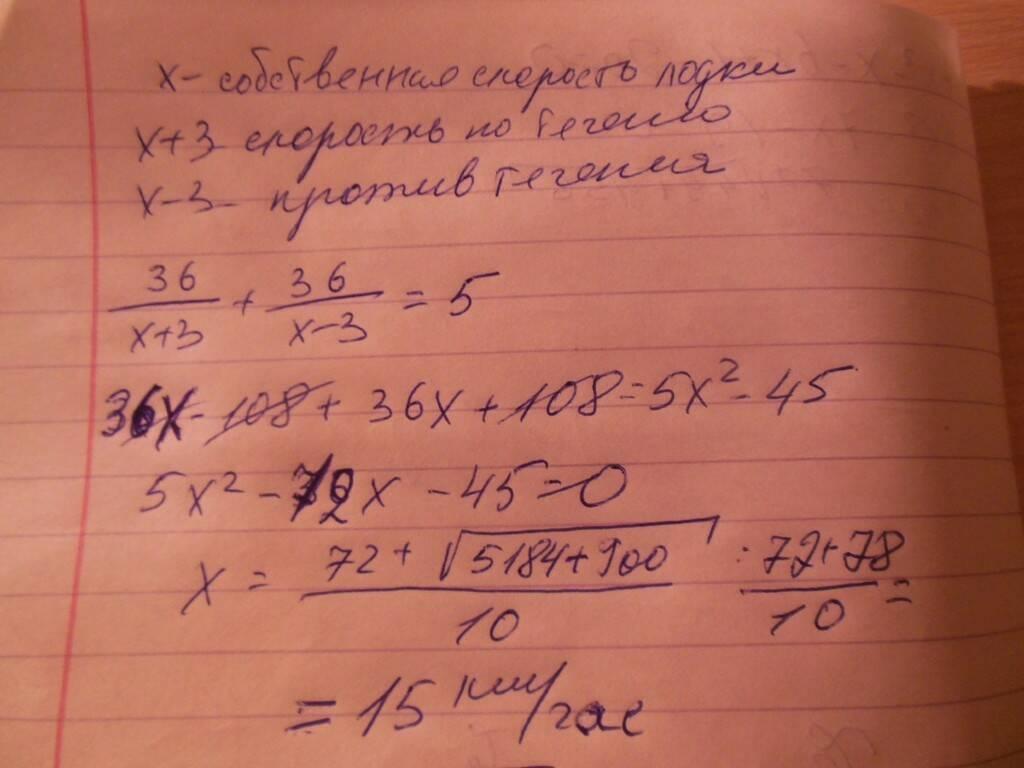 x - собственная скорость лодки
x+3 скорость по течению
x-3 - против течения
36/(x+3) + 36/(x-3) = 5
36x - 108 + 36x + 108 = 5x² - 45
5x² - 72x - 45 = 0
x = (72 + √(5184+900))/10 : (72+78)/10 =
= 15 км/час